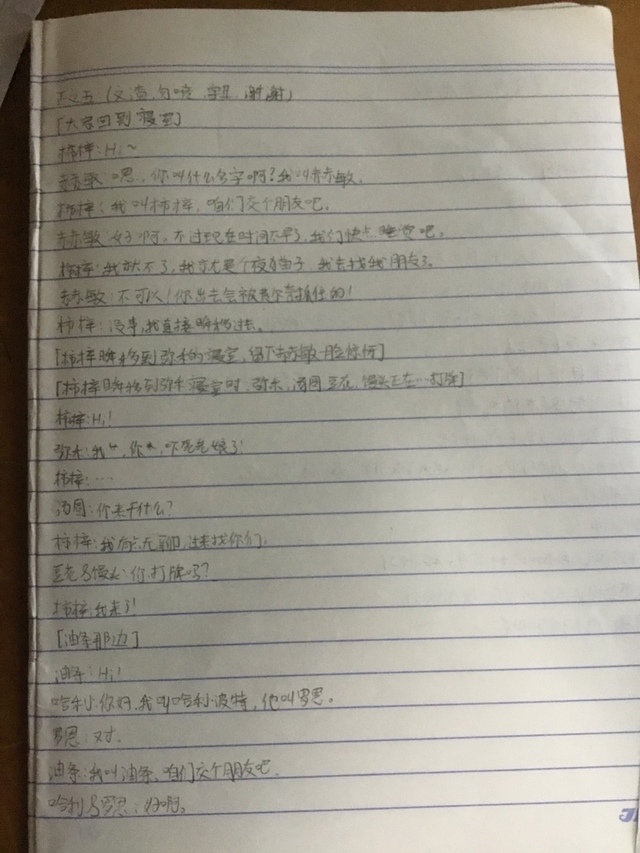 [大家回到寝室]
柿梓:Hi~
赫敏:嗯,你叫什么名字啊?我叫赫敏。
柿梓:我叫柿梓,咱们交个朋友吧。
赫敏:好啊。不过现在时间不早了,我们快点睡觉吧。
柿梓:我就不了,我就是个夜猫子,我去找我朋友了。
赫敏:不可以!你出去会被费尔奇抓住的!
柿梓:没事,我直接瞬移过去。
[柿梓瞬移到弥禾的寝室,留下赫敏一脸惊讶]
[柿梓瞬移到弥禾寝室时,弥禾,汤圆,豆花,馒头正在…打牌]
柿梓:Hi!
弥禾:我*,你*,吓死老娘了!
柿梓:…
汤圆:你来干什么?
柿梓:我有点无聊,过来找你们。
豆花&馒头:你打牌吗?
柿梓:我走了!
[油条那边]
油条:Hi!
哈利:你好,我叫哈利·波特,他叫罗恩。
罗恩:对。
油条:我叫油条。咱们交个朋友吧。
哈利&罗恩:好啊。